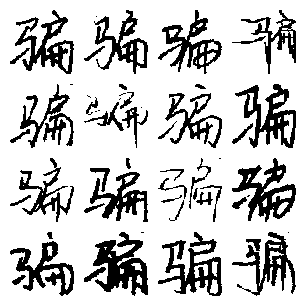 骗骗骗骗
骗骗骗骗
骗骗骗骗
骗骗骗骗